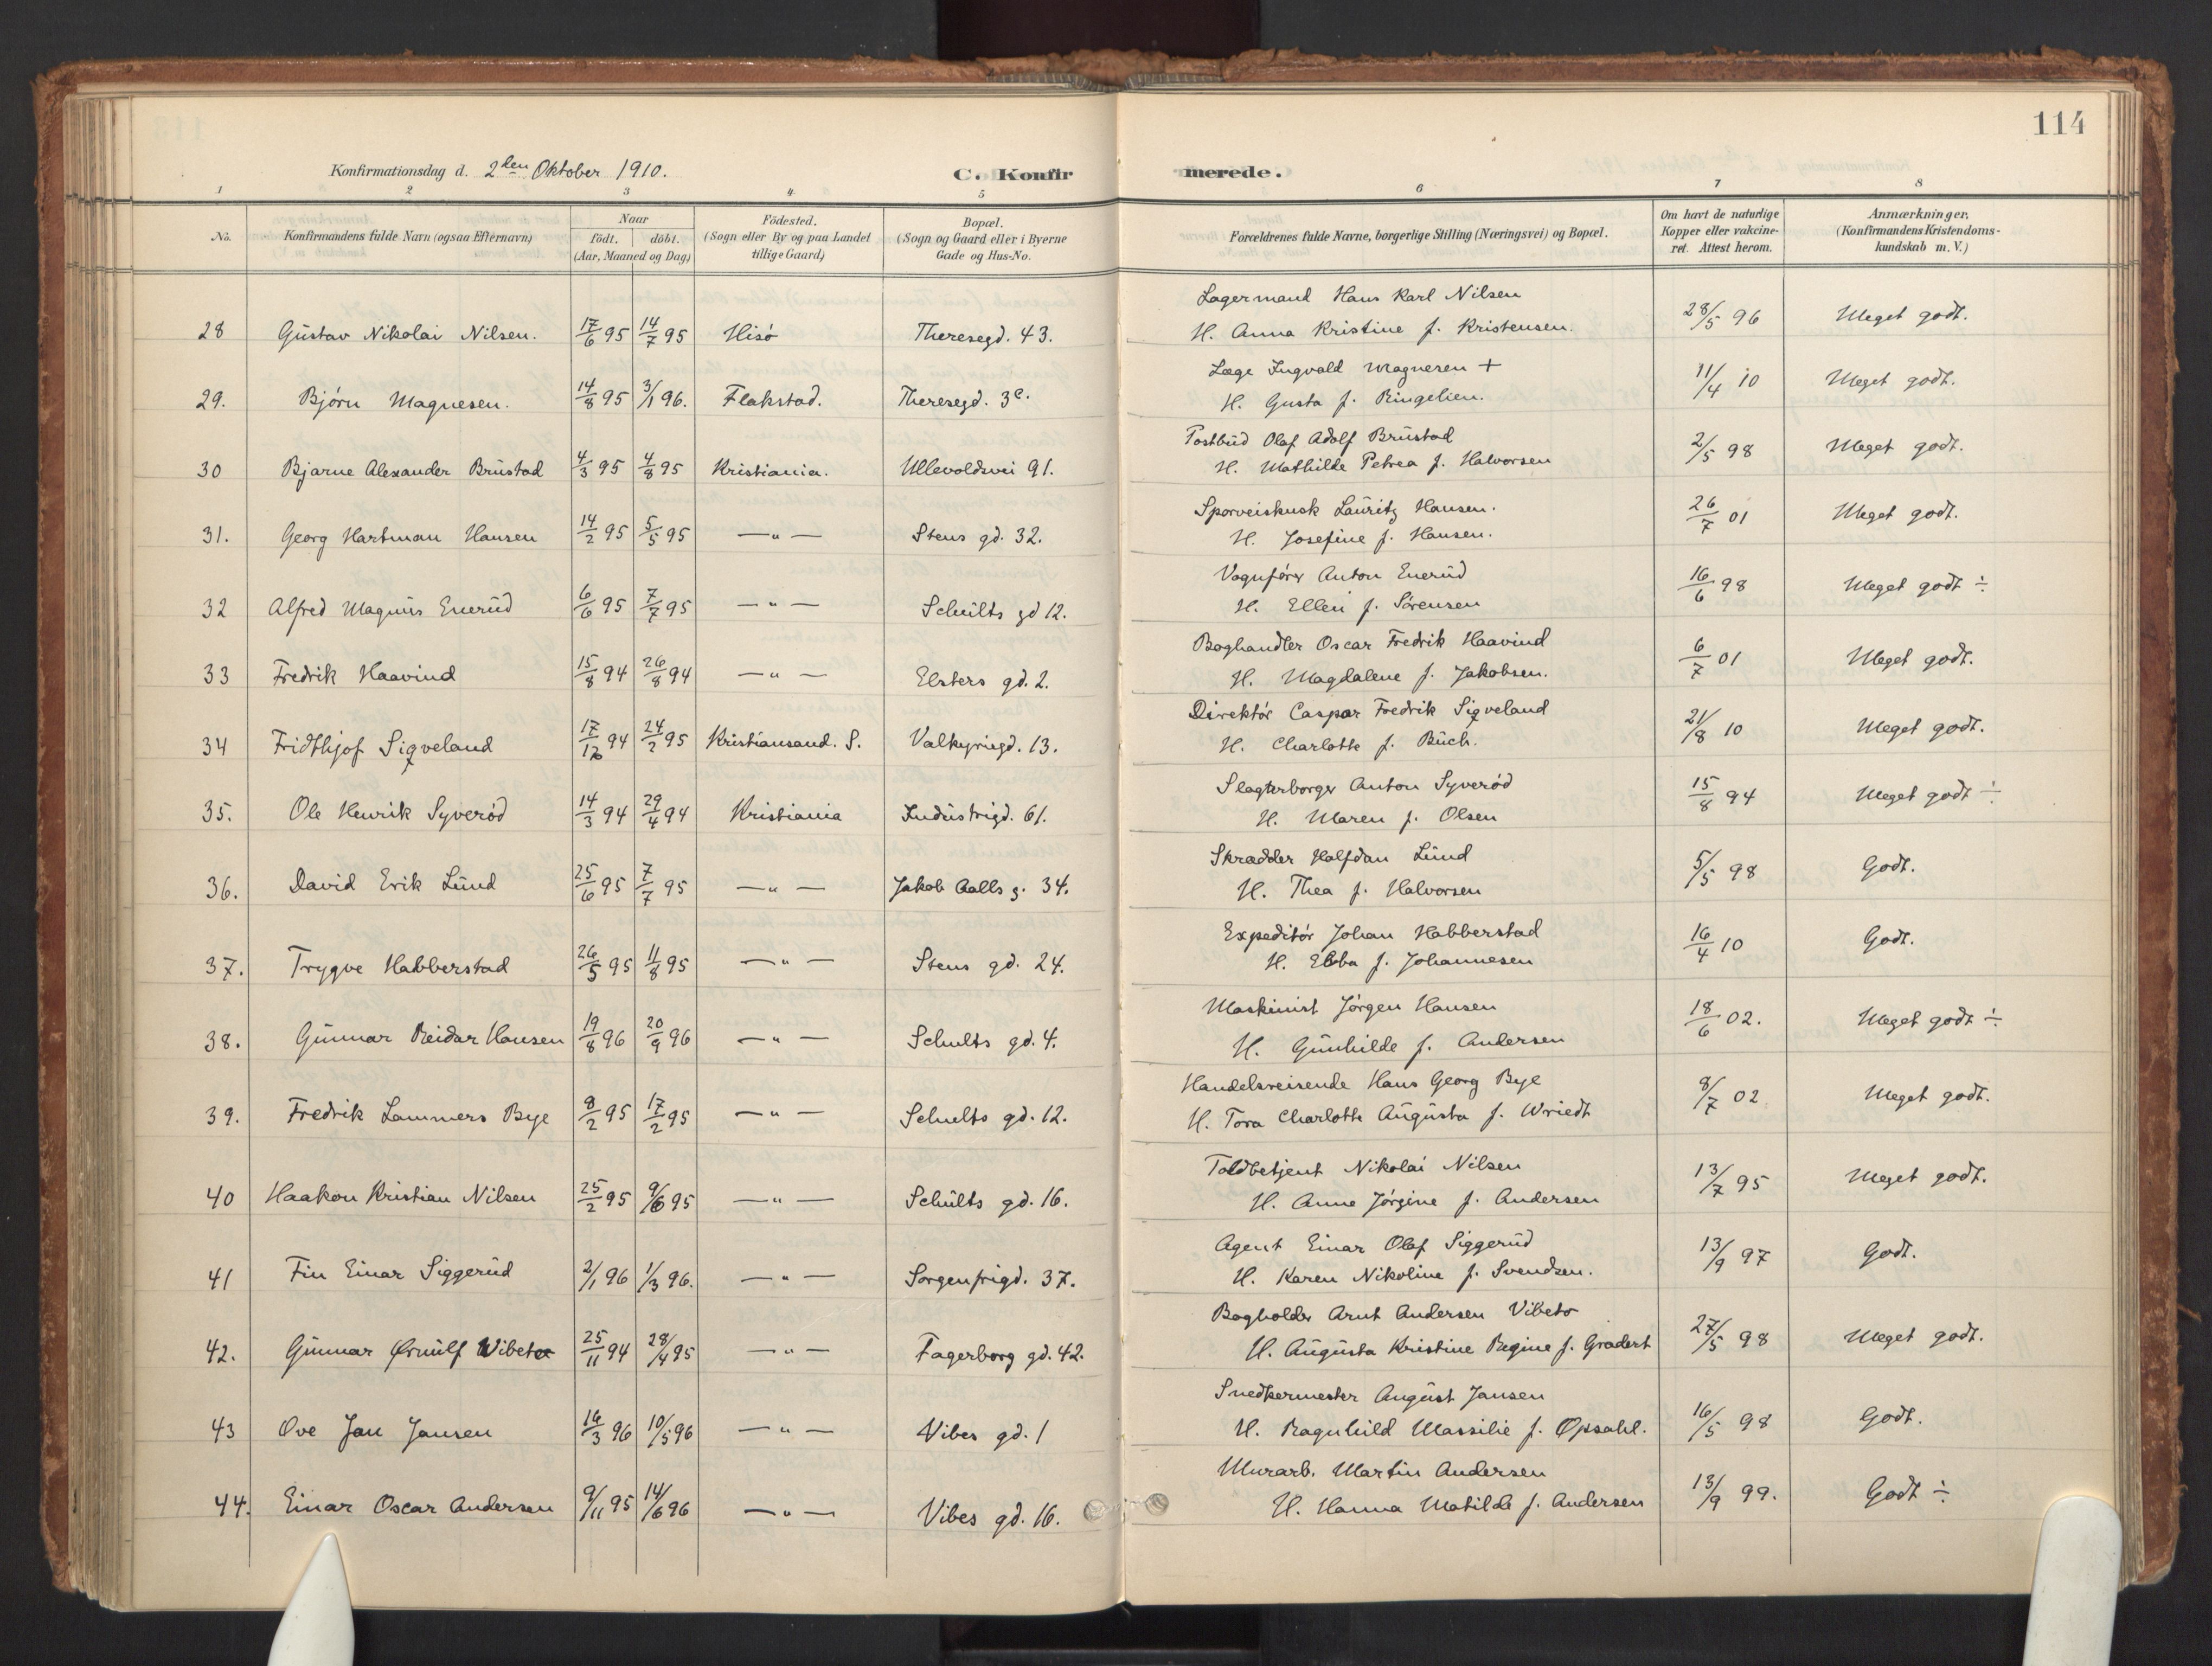 114
Konfirmationsdag d. 2den Oktober 1910.
C. Konfirmerede.
1 2 3 4 5 6 7 8
No.
Konfirmandens fulde Navn (ogsaa Efternavn)
Naar
födt. döbt.
(Aar, Maaned og Dag)
Födested.
(Sogn eller By og paa Landet
tillige Gaard)
Bopæl.
(Sogn og Gaard eller i Byerne
Gade og Hus-No.
Forældrenes fulde Navne, borgerlige Stilling (Næringsvei) og Bopæl.
Om havt de naturlige
Kopper eller vakcine-
ret. Attest herom.
Anmærkninger.
(Konfirmandens Kristendoms-
kundskab m. V.)
Lagermand Hans Karl Nilsen
28 Gustav Nikolai Nilsen. 17/6 95 14/7 95 Hisö Theresegd. 43. H. Anna Kristine f. Kristensen. 28/5 96 Meget godt.
Læge Ingvald Magnesen +
29. Björn Magnesen. 14/8 95 3/1 96. Flakstad. Theresegd. 3c. H. Gusta f. Ringelien. 11/4 10 Meget godt.
Postbud Olaf Adolf Brustad
30 Bjarne Alexander Brustad 4/3 95 4/8 95 Kristiania. Ullevoldsvei 91. H. Mathilde Petrea f. Halvorsen 2/5 98 Meget godt.
Sporveiskusk Lauritz Hansen.
31. Georg Hartman Hansen 14/2 95 5/5 95 —"— Stens gd. 32. H. Josefine f. Hansen. 26/7 01 Meget godt.
Vognförer Anton Enerud
32 Alfred Magnus Enerud 6/6 95 7/7 95 —"— Schults gd 12. H. Ellen f. Sörensen 16/6 98 Meget godt ÷
Boghandler Oscar Fredrik Haavind
33 Fredrik Haavind 15/8 94 26/8 94 —"— Elsters gd. 2. H. Magdalene f. Jakobsen. 6/7 01 Meget godt.
Direktör Caspar Fredrik Sigveland
34 Fridthjof Sigveland 17/12 94 24/2 95 Kristiansand. S. Valkyriegd. 13. H. Charlotte f. Buch. 21/8 10 Meget godt.
Slagterborger Anton Syveröd
35. Ole Henrik Syveröd 14/3 94 29/4 94 Kristiania Industrigd. 61. H. Maren f. Olsen 15/8 94 Meget godt ÷
Skrædder Halfdan Lund
36. David Erik Lund 25/6 95 7/7 95 —"— Jakob Aalls g. 34. H. Thea f. Halvorsen 5/5 98 Godt.
Expeditör Johan Habberstad
37. Trygve Habberstad 26/5 95 11/8 95 —"— Stens gd. 24. H. Ebba f. Johannesen 16/4 10 Godt.
Maskinist Jörgen Hansen
38. Gunnar Reidar Hansen 19/8 96 20/9 96 —"— Schults gd. 4. H. Gunhilde f. Andersen 18/6 02. Meget godt ÷
Handelsreisende Hans Georg Bye
39. Fredrik Lammers Bye 8/2 95 17/2 95 —"— Schults gd. 12. H. Tora Charlotte Augusta f. Wriedt 8/7 02 Meget godt.
Toldbetjent Nikolai Nilsen
40 Haakon Kristian Nilsen 25/2 95 9/6 95 —"— Schults gd. 16. H. Anne Jörgine f. Andersen 13/7 95 Meget godt.
Agent Einar Olaf Siggerud
41 Fin Einar Siggerud 2/1 96 1/3 96. —"— Sorgenfrigd. 37. H. Karen Nikoline f. Svendsen. 13/9 97 Godt.
Bogholder Arnt Andersen Vibeto
42. Gunnar Ørnulf Vibeto 25/11 94 28/4 95 —"— Fagerborg gd. 42. H. Augusta Kristine Regine f. Gradert 27/5 98 Meget godt.
Snedkermester August Jansen
43 Ove Jan Jansen 16/3 96 10/5 96 —"— Vibes gd. 1 H. Ragnhild Massilie f. Opsahl. 16/5 98 Godt.
Murarb. Martin Andersen
44. Einar Oscar Andersen 9/11 95 14/6 96 —"— Vibes gd. 16. H. Hanna Matilde f. Andersen 13/9 99. Godt ÷